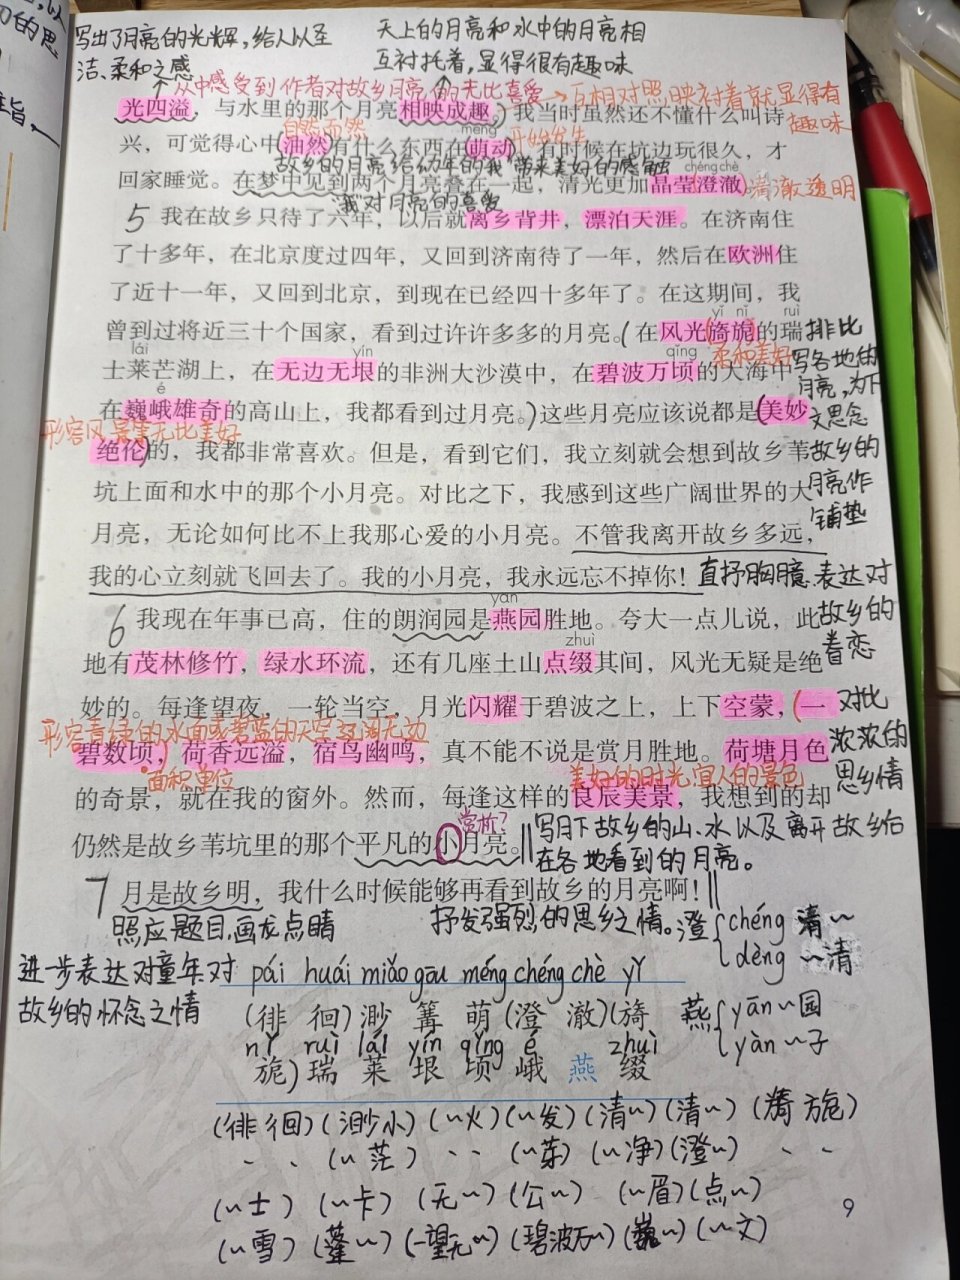 写出了月亮的光辉,给人以至
洁、柔和之感
天上的月亮和水中的月亮相
互衬托着,显得很有趣味
从中感受到作者对故乡月亮的无比喜爱
互相对照映衬着就显得有
趣味
光四溢，与水里的那个月亮相映成趣。)我当时虽然还不懂什么叫诗
自然而然
méng
开始发生
兴，可觉得心中(油然)有什么东西在(萌动)。有时候在坑边玩很久，才
故乡的月亮给幼年的我带来美好的感触
chéng chè
回家睡觉。在梦中见到两个月亮叠在一起，清光更加晶莹澄澈)清澈透明
"我"对月亮的喜爱
5 我在故乡只待了六年，以后就离乡背井，漂泊天涯。在济南住
了十多年，在北京度过四年，又回到济南待了一年，然后在欧洲住
了近十一年，又回到北京，到现在已经四十多年了。在这期间，我
yǐ nǐ ruì
曾到过将近三十个国家，看到过许许多多的月亮。(在风光(旖旎)的瑞
排比
lái yín qǐng
柔和美好
士莱芒湖上，在无边无垠的非洲大沙漠中，在碧波万顷的大海中，
写各地的
é
月亮,为下
在巍峨雄奇的高山上，我都看到过月亮。)这些月亮应该说都是(美妙
文思念
形容风景等无比美好
绝伦)的，我都非常喜欢。但是，看到它们，我立刻就会想到故乡苇
故乡的
坑上面和水中的那个小月亮。对比之下，我感到这些广阔世界的大
月亮作
铺垫
月亮，无论如何比不上我那心爱的小月亮。不管我离开故乡多远，
我的心立刻就飞回去了。我的小月亮，我永远忘不掉你！
直抒胸臆.表达对
yān
6 我现在年事已高，住的朗润园是燕园胜地。夸大一点儿说，此
故乡的
zhuì
眷恋
地有茂林修竹，绿水环流，还有几座土山点缀其间，风光无疑是绝
妙的。每逢望夜，一轮当空，月光闪耀于碧波之上，上下空蒙，(一
对比
形容青绿的水面或碧蓝的天空辽阔无边
碧数顷)，荷香远溢，宿鸟幽鸣，真不能不说是赏月胜地。荷塘月色
浓浓的
面积单位
美好的时光,宜人的景色
思乡情
的奇景，就在我的窗外。然而，每逢这样的良辰美景，我想到的却
赏析?
仍然是故乡苇坑里的那个平凡的小月亮。
写月下故乡的山、水以及离开故乡后
在各地看到的月亮。
7 月是故乡明，我什么时候能够再看到故乡的月亮啊！
照应题目,画龙点睛
抒发强烈的思乡之情。
澄 chéng 清~
dèng ~清
进一步表达对童年对
故乡的怀念之情
pái huái miǎo gōu méng chéng chè yǐ
(徘 徊) 渺 篝 萌 (澄 澈) (旖
燕 yān ~园
yàn ~子
nǐ ruì lái yín qǐng é zhuì
旎) 瑞 莱 垠 顷 峨 燕 缀
(徘徊) (渺小) (~火) (~发) (清~) (清~) (旖旎)
(~茫) (~芽) (~净) (澄~)
(~士) (~卡) (无~) (公~) (~眉) (点~)
(~雪) (蓬~) (一望无~) (碧波万~) (巍~) (~文)
9